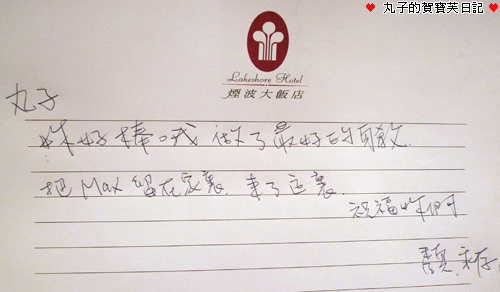 ♥ 丸子的賀寶芙日記 ♥
Lakeshore Hotel
煙波大飯店
丸子
妳好棒哦 做了最好的
把 Max 留在家裏, 來了這裏.
祝福妳們